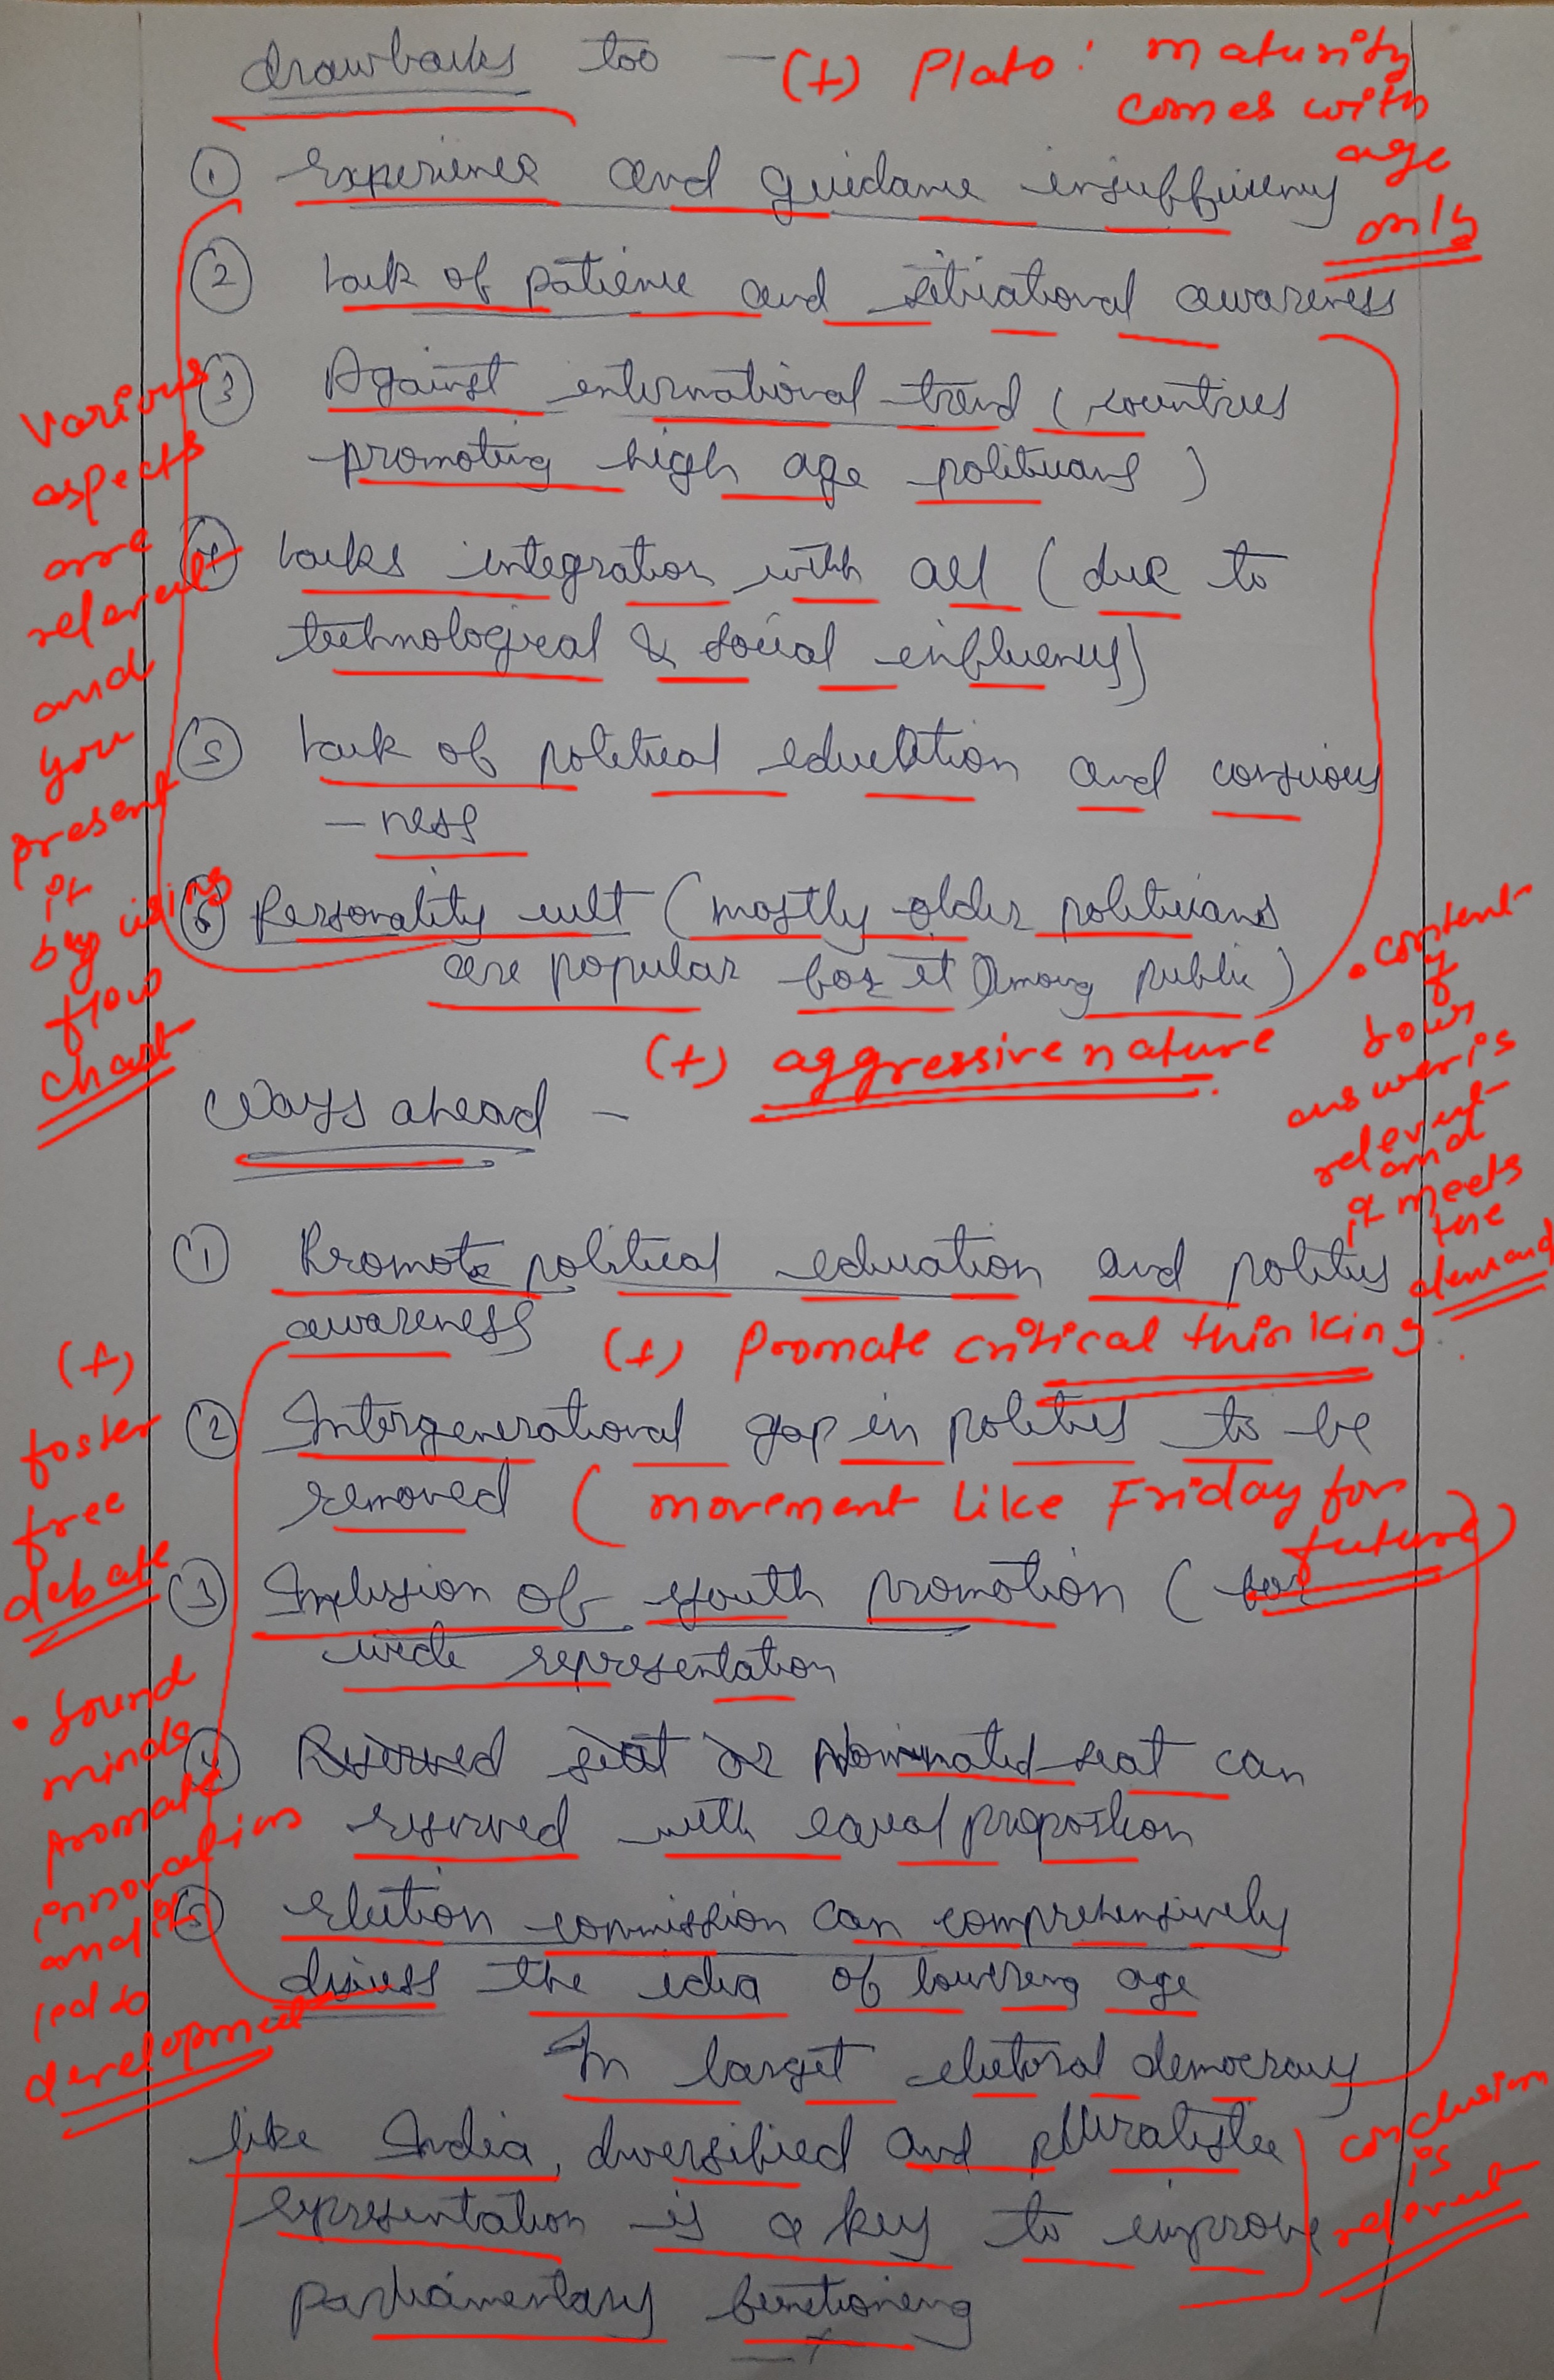 drawbacks too —
(+) Plato: maturity
comes with
age
only
① Experience and guidance insufficiency
② Lack of patience and situational awareness
③ Against international trend (countries
promoting high age politicians)
④ Lacks integration with all (due to
technological & social influences)
⑤ Lack of political education and conscious
-ness
⑥ Personality cult (mostly older politicians
are popular for it among public)
(+) aggressive nature
Various
aspects
are
relevent
and
you
present
it
by using
flow
chart
• content
of
your
answer is
relevent
and
it meets
the
demand
Ways ahead -
① Promote political education and politics
awareness
(+) Promote critical thinking
② Intergenerational gap in politics to be
removed (movement like Friday for
future)
③ Inclusion of youth promotion (for
wide representation
④ Reserved seat or Nominated seat can
reserved with equal proportion
⑤ Election commission can comprehensively
discuss the idea of lowering age
(+)
foster
free
debate
• Sound
minds
promote
innovations
and it
led to
development
In larget electoral democracy
like India, diversified and pluralistic
representation is a key to improve
parliamentary functioning
x
conclusion
is
relevent